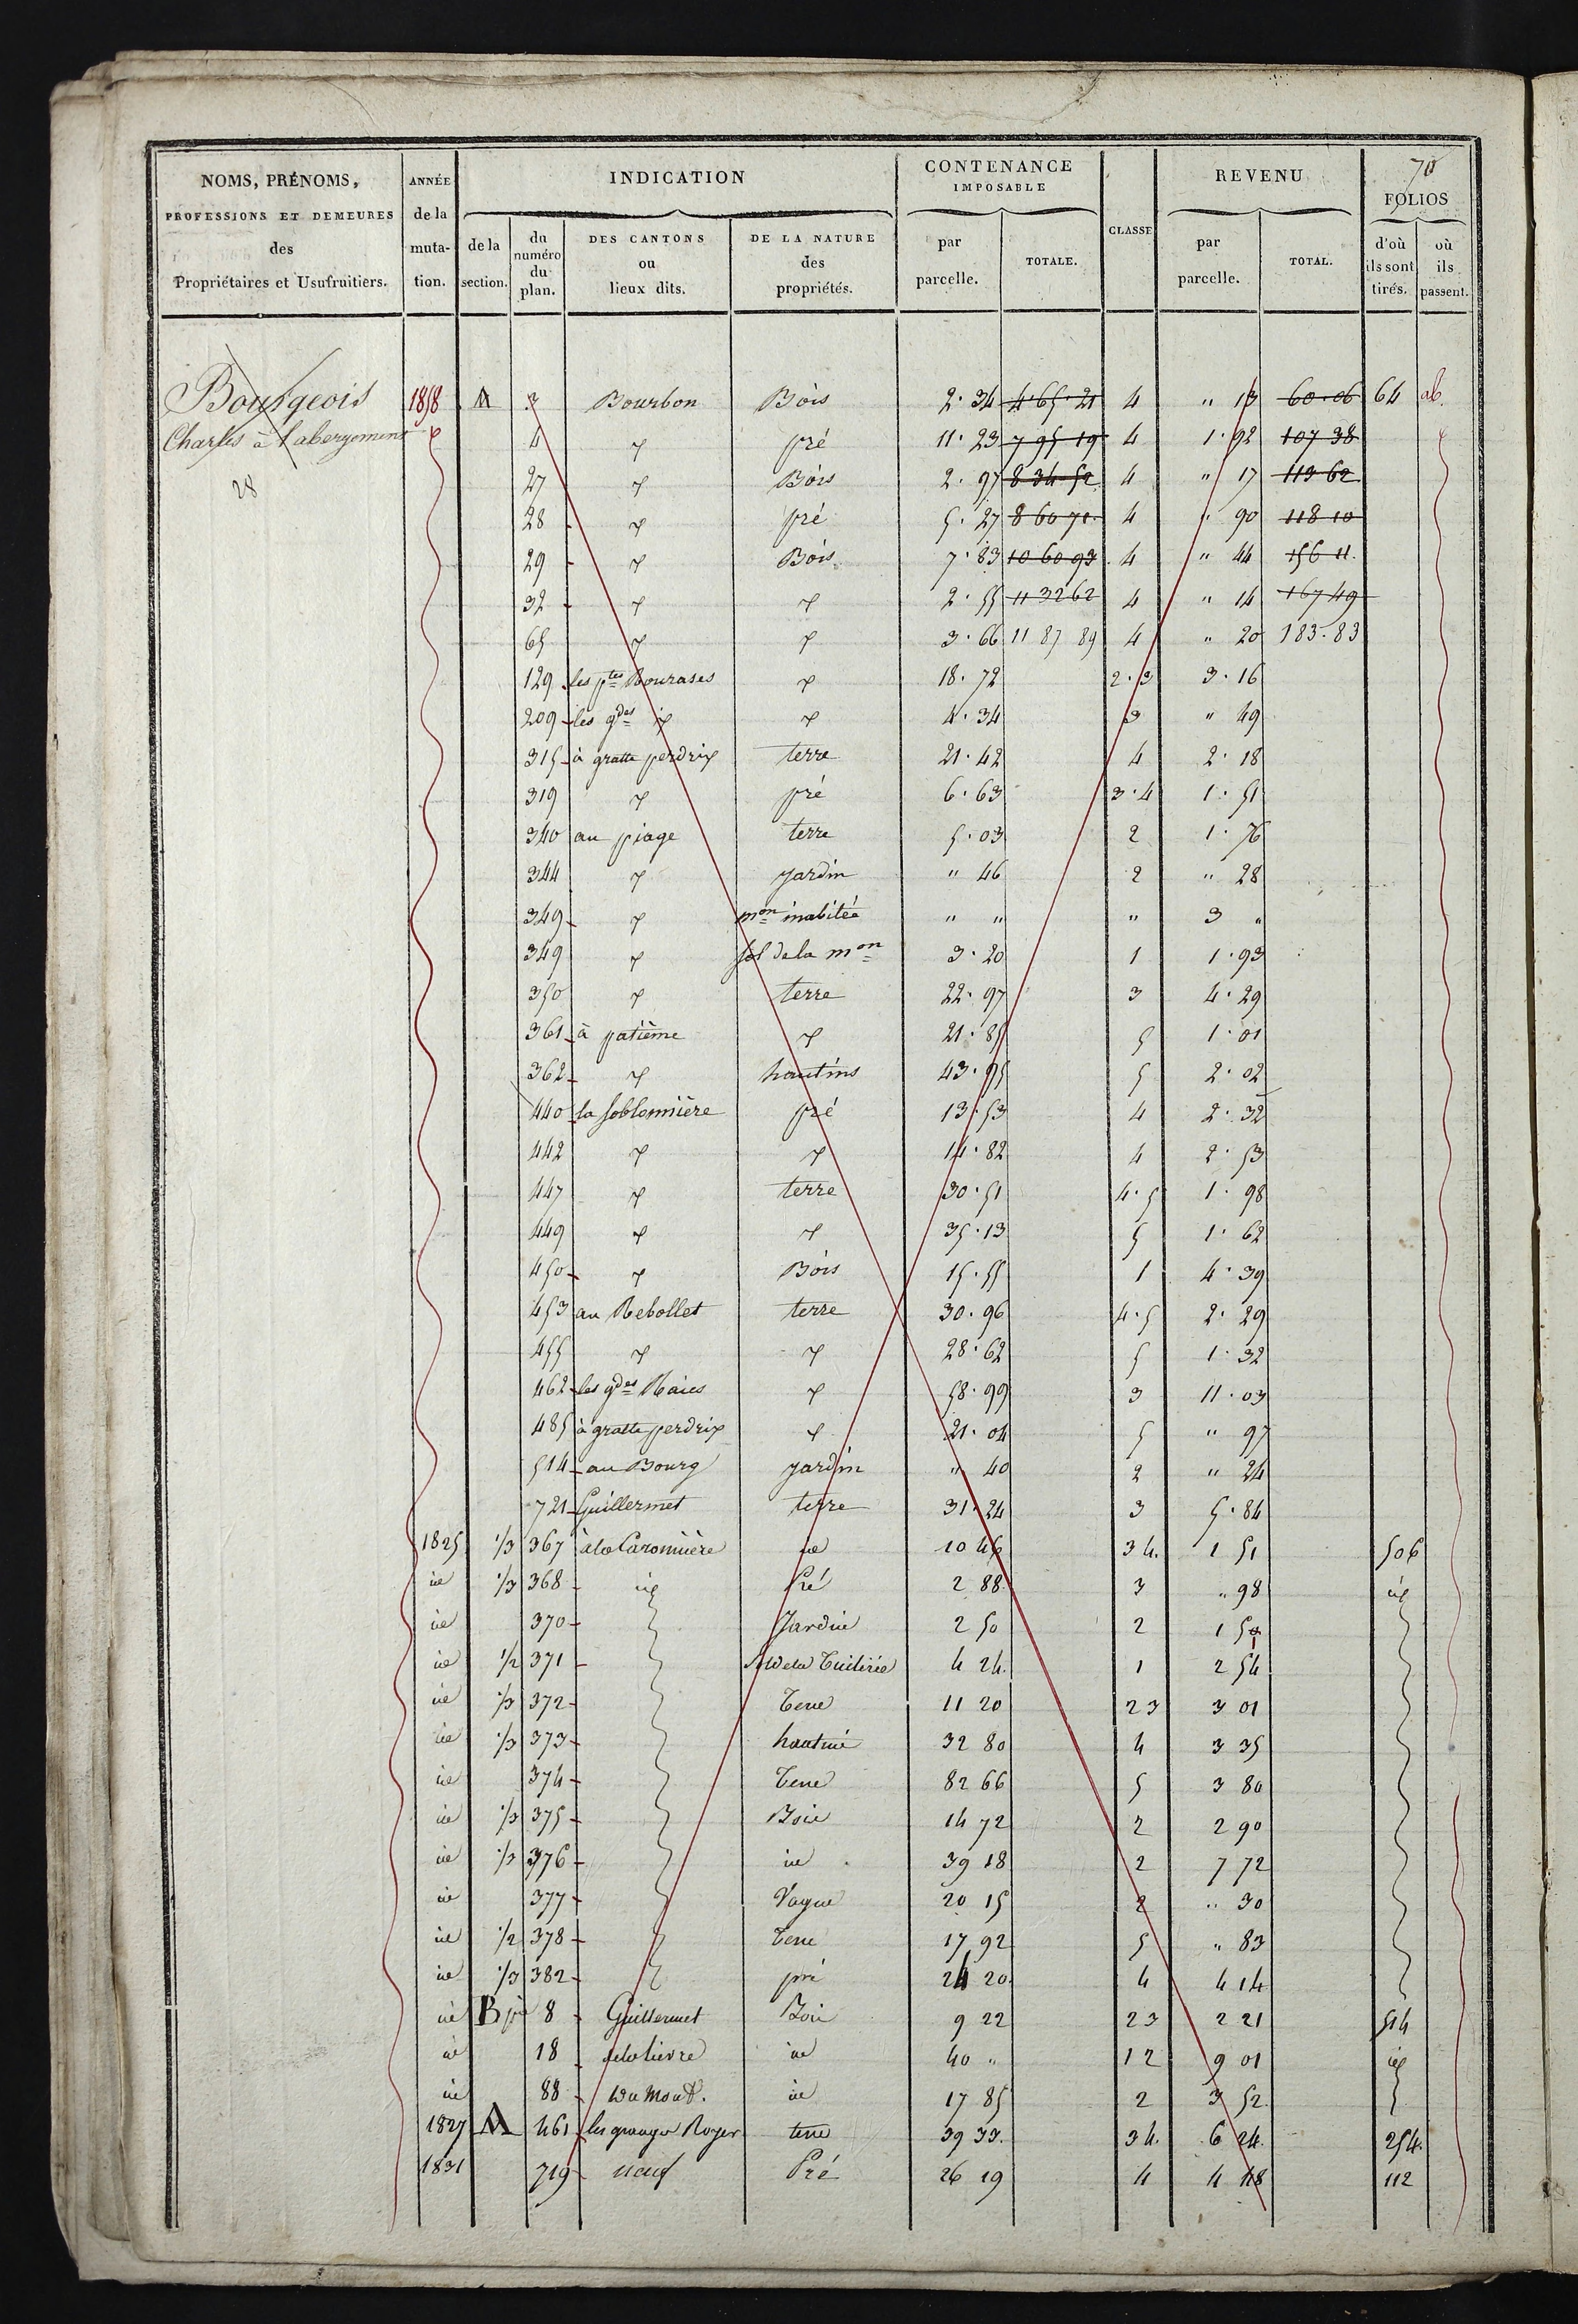 70
NOMS, PRÉNOMS,
PROFESSIONS ET DEMEURES
des
Propriétaires et Usufruitiers.
ANNÉE
de la
muta-
tion.
INDICATION
de la
section.
du
numéro
du
plan.
DES CANTONS
ou
lieux dits.
DE LA NATURE
des
propriétés.
CONTENANCE
IMPOSABLE
par
parcelle.
TOTALE.
CLASSE
REVENU
par
parcelle.
TOTAL.
FOLIOS
d'où
ils sont
tirés.
où
ils
passent.
Bourgeois
Charles à l'abergement
28
1858 A 3 Bourbon Bois 2.34 4.65.21 4 " 13 60.06 64 ab.
4 pré 11.23 7 95 19 4 1.92 107 38
27 Bois 2.97 8 34 52 4 " 17 113 62
28 pré 5.27 8 60 71 4 " 90 118 10
29 Bois 7.83 10 60 93 4 " 44 156 11
32 2.55 11 32 62 4 " 14 167 49
65 3.66 11 87 89 4 " 20 183.83
129 les ptes Rourases 18.72 2.3 3.16
209 les gdes 4.34 3 " 49
315 à gratte perdrix terre 21.42 4 2.18
319 pré 6.63 3.4 1.51
340 au piage terre 5.03 2 1.76
344 jardin " 46 2 " 28
349 mon inabitée " " " 3 "
349 sol de la mon 3.20 1 1.93
350 terre 22.97 3 4.29
361 à patième 21.85 5 1.01
362 hautins 43.95 5 2.02
440 la soblonnière pré 13.53 4 2.32
442 14.82 4 2.53
447 terre 30.51 4.5 1.98
449 35.13 5 1.62
450 Bois 15.55 1 4.39
453 au Rebollet terre 30.96 4.5 2.29
455 28.62 5 1.32
462 les gdes Raies 58.99 3 11.03
485 à gratte perdrix 21.04 5 " 97
514 au Bourg jardin " 40 2 " 24
721 Guillermet terre 31.24 3 5.84
1825 1/3 367 à la Caronnière id 10 46 3 4. 1 51 506
id 1/3 368 id Pré 2 88 3 " 98 id
id 370 Jardin 2 50 2 1 51
id 1/2 371 Sol de la Tuilirie 4 24. 1 2 54
id 1/3 372 Terre 11 20 2 3 3 01
id 1/3 373 hautin 32 80 4 3 35
id 374 Terre 82 66 5 3 80
id 1/3 375 Bois 14 72 2 2 90
id 1/3 376 id 39 18 2 7 72
id 377 Vague 20 15 2 " 30
id 1/2 378 Terre 17 92 5 " 83
id 1/3 382 pré 24 20 4 4 14
id B 8 Guillermet Bois 9 22 2 3 2 21 514
id 18 id 40 " 1 2 9 01 id
id 88 du Mont. id 17 85 2 3 52
1827 A 461 les granges Royer terre 39 33. 3 4. 6 24. 254.
1831 719 neuf Pré 26 19 4 4 48 112